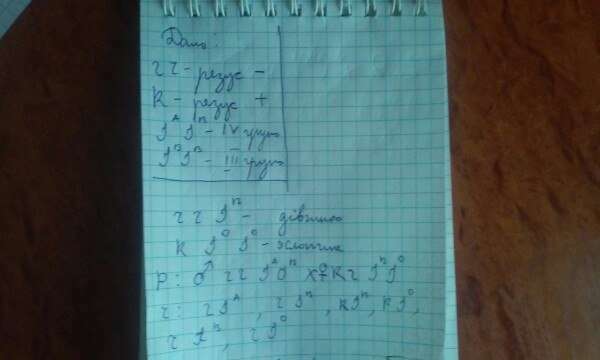 Дано:
rr - резус -
R - резус +
I^A I^B - IV група
I^B I^B - III група
rr I^B - дівчина
R I^0 I^0 - хлопчик
P: ♂ rr I^A I^B x ♀ Rr I^B I^0
r: r I^A, r I^B, R I^B, R I^0,
r I^B, r I^0